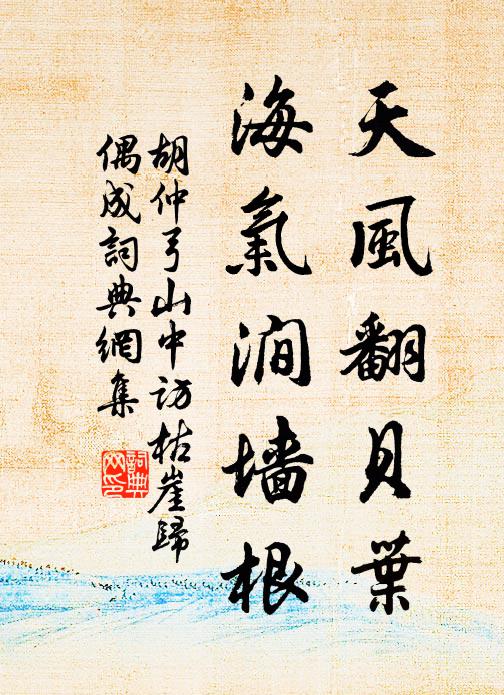 天風翻貝葉
海氣澗墻根
胡仲弓山中訪枯崖歸
偶成詞典網集
詞典
网印